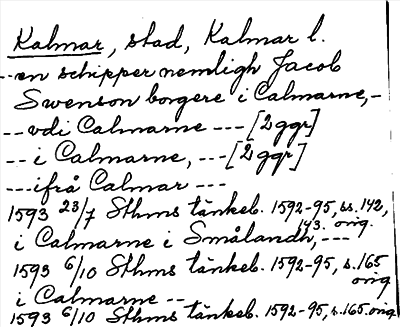 Kalmar, stad, Kalmar l.
--en schipper nemligh Jacob
Swenson borgere i Calmarne,-
--vdi Calmarne --- [2 ggr]
--i Calmarne, --- [2 ggr]
---ifrå Calmar ---
1593 23/7 Sthms tänkeb. 1592-95, ss. 142,
143. orig.
i Calmarne i Smålandh, ---
1593 6/10 Sthms tänkeb. 1592-95, s. 165
orig
i Calmarne --
1593 6/10 Sthms tänkeb. 1592-95, s. 165. orig